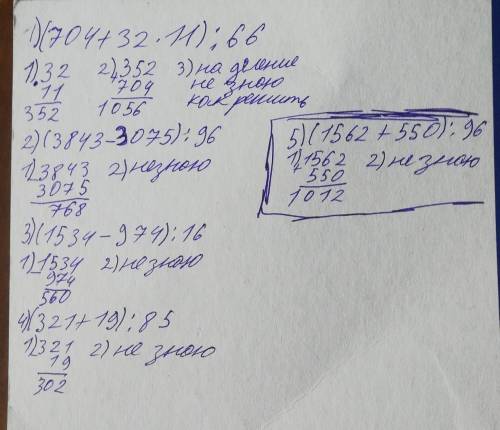 1)(704+32·11):66
1)32 2)352 3)на деление
11 704 не зною
352 1056 как решить
2)(3843-3075):96
1)3843 2)не зною
3075
768
3)(1534-974):16
1)1534 2)не зною
974
560
4)(321+19):85
1)321 2)не зною
19
302
5)(1562+550):96
1)1562 2)не зною
550
1012